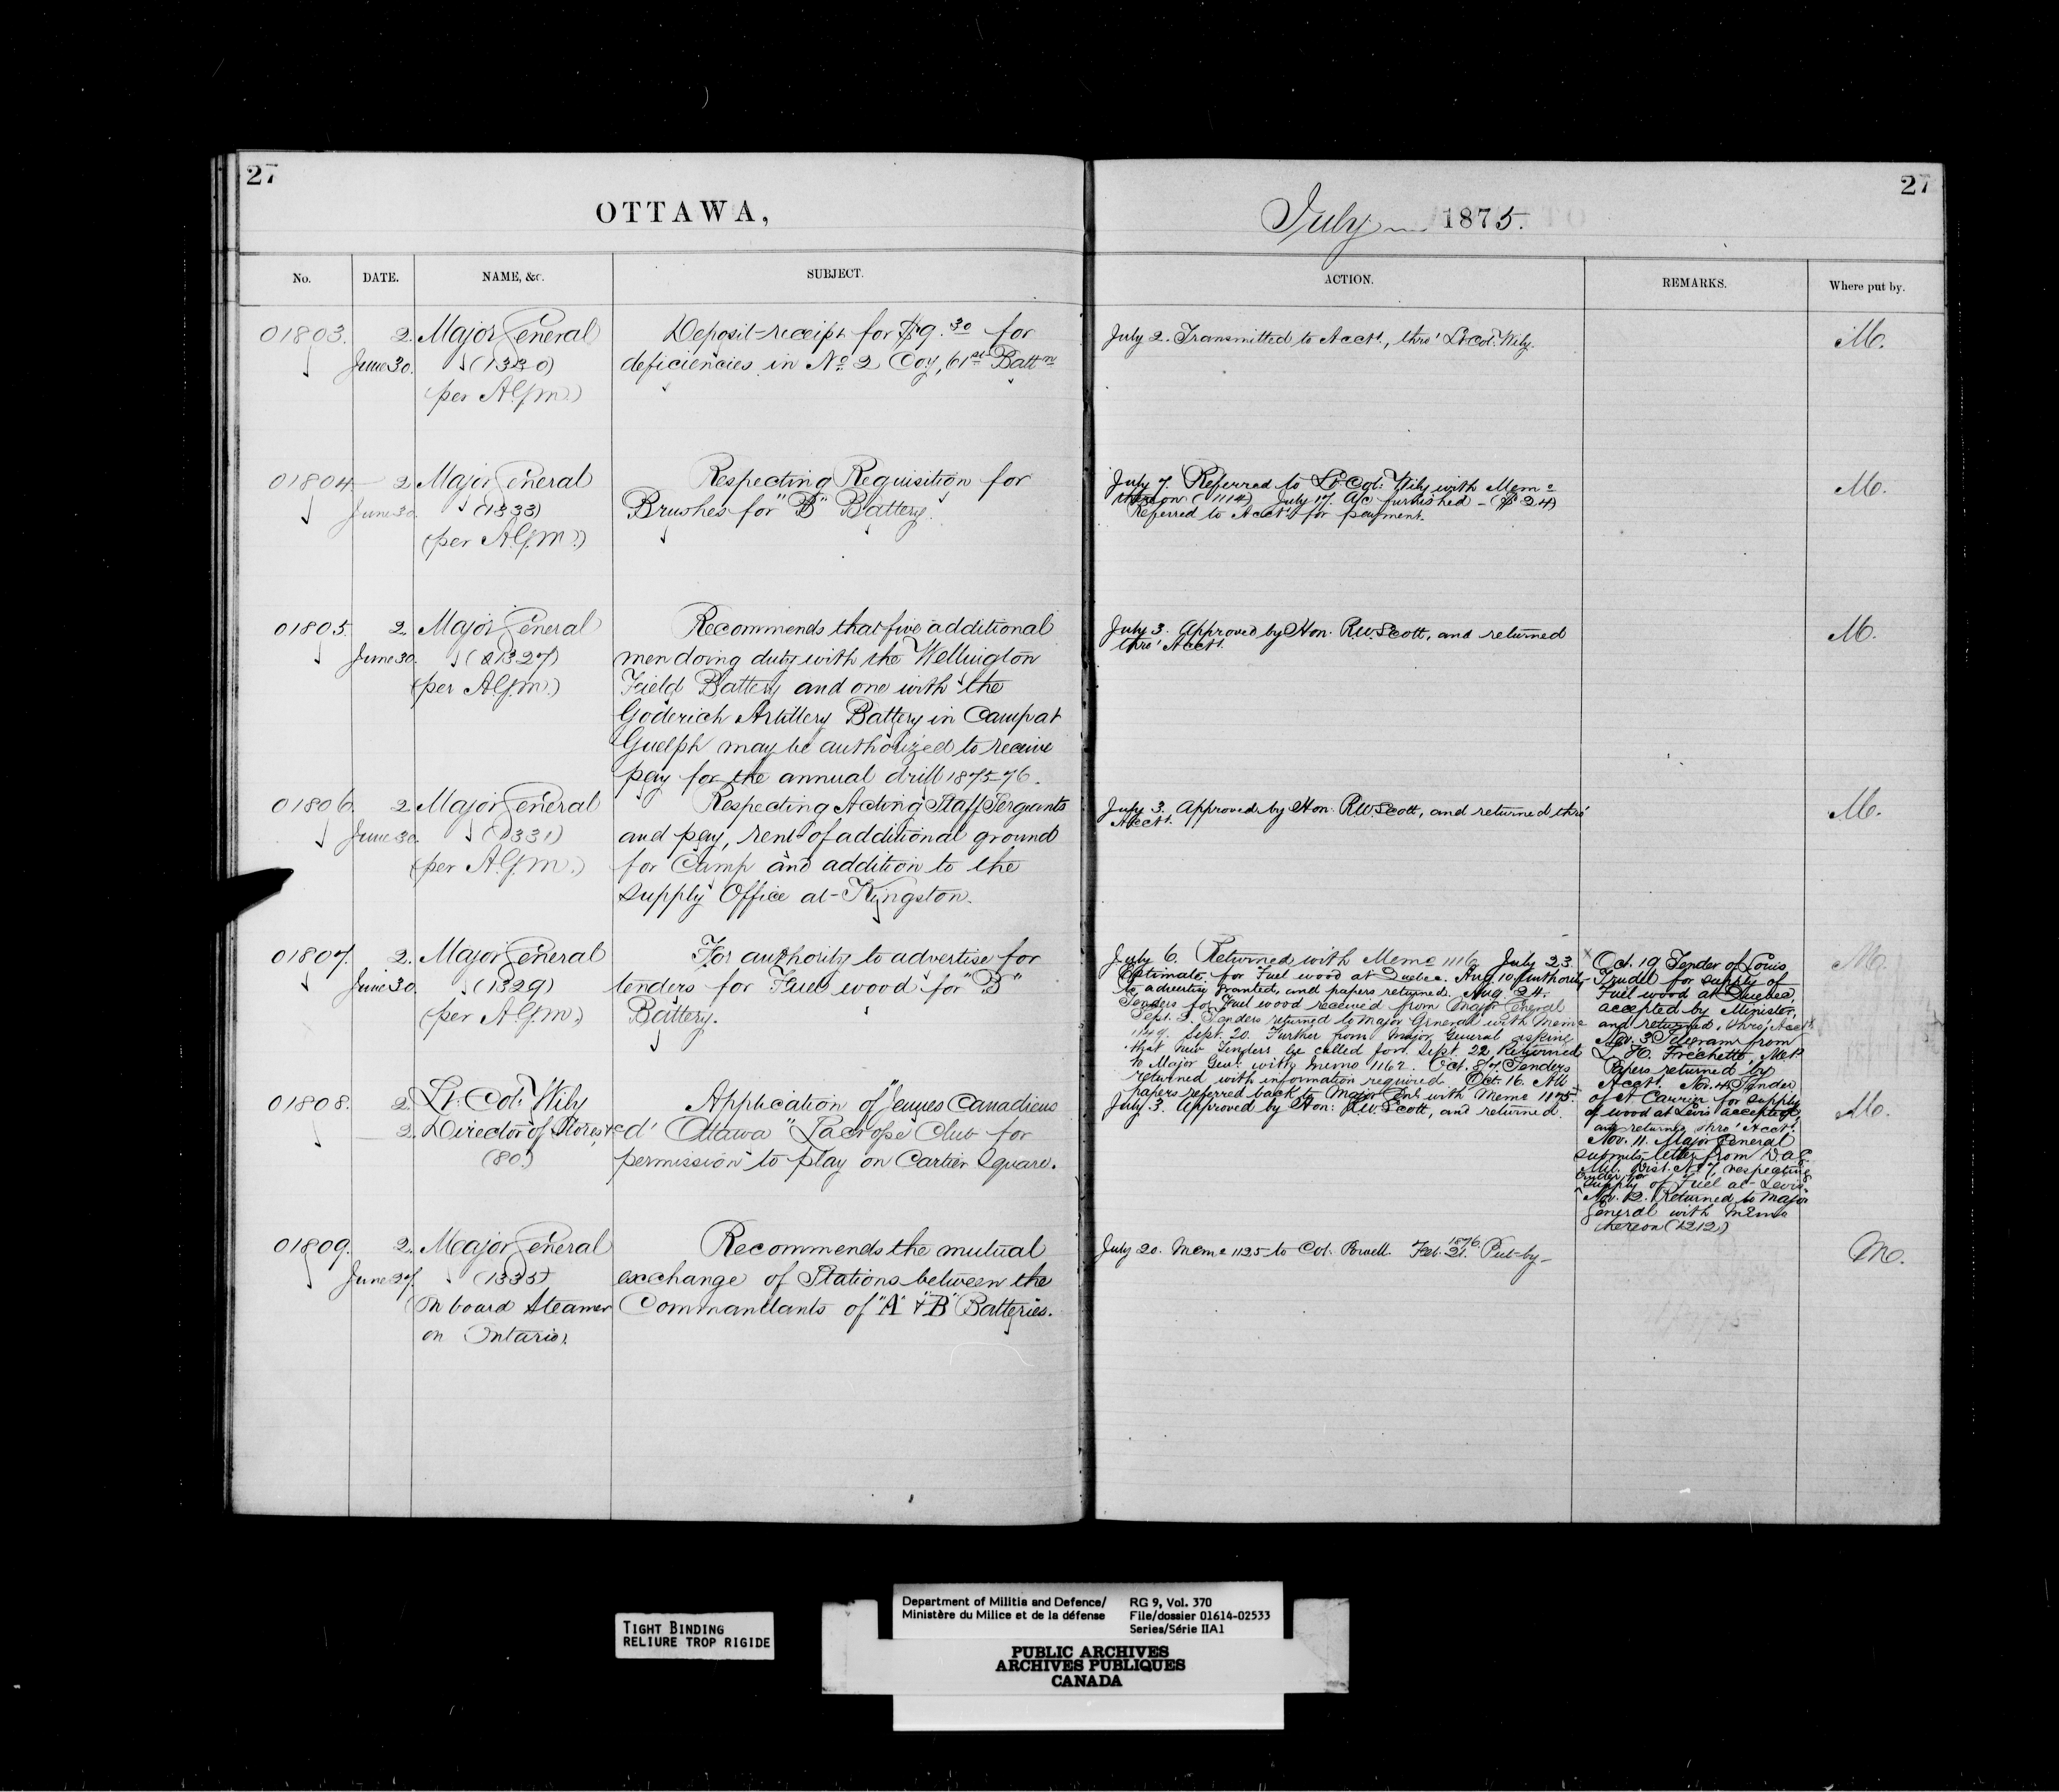 27
OTTAWA,
No. DATE. NAME, &c. SUBJECT.
01803. 2. Major General Deposit-receipt for $9.30 for
June 30. (1330) deficiencies in No 2 Coy, 61st Battn
(per A.G.M.)
01804 2 Major General Respecting Requisition for
June 30. (1333) Brushes for "B" Battery.
(per A.G.M.)
01805. 2. Major General Recommends that five additional
June 30. (1327) men doing duty with the Wellington
(per A.G.M.) Field Battery and one with the
Goderich Artillery Battery in Camp at
Guelph may be authorized to receive
pay for the annual drill 1875-76.
01806. 2 Major General Respecting Acting Staff Sergeants
June 30. (1331) and pay, rent of additional ground
(per A.G.M.) for Camp and addition to the
Supply Office at Kingston.
01807. 2. Major General For authority to advertise for
June 30. (1329) tenders for Fuel wood for "B"
(per A.G.M.) Battery.
01808. 2. Lt. Col. Wily Application of "Jeunes Canadiens
2. Director of Stores &c d' Ottawa" Lacrosse Club for
(80.) permission to play on Cartier Square.
01809. 2. Major General Recommends the mutual
June 27. (1335) exchange of Stations between the
(On board Steamer Commandants of "A" & "B" Batteries.
on Ontario).
27
July 1875.
ACTION. REMARKS. Where put by.
July 2. Transmitted to Acct., thro' Lt. Col. Wily. M.
July 7. Referred to Lt. Col. Wily with Memo M.
thereon (1114) July 17. A/c furnished - ($24)
Referred to Acct. for payment.
July 3. Approved by Hon. R.W. Scott, and returned M.
thro' Acct.
July 3. Approved by Hon. R.W. Scott, and returned thro' M.
Acct.
July 6. Returned with Memo 1116 July 23. M.
Estimate, for Fuel wood at Quebec. Aug. 10 Authority
to advertise granted, and papers returned. Aug. 24.
Tenders for Fuel wood received from Major General
Sept. 3. Tenders returned to Major General with Memo
1149. Sept. 20. Further from Major General asking
that new Tenders be called for. Sept. 22, Returned
to Major Genl. with Memo 1162. Oct. 8 Tenders
returned with information required. Oct. 16. All
papers referred back to Major Genl. with Memo 1175
Oct. 19 Tender of Louis
Trudel for supply of
Fuel wood at Quebec,
accepted by Minister,
and returned, thro' Acct.
Nov. 3 Telegram from
L. H. Fréchette, M.P.
Papers returned by
Acct. Nov. 4. Tender
of A Carrier for supply
of wood at Levis accepted,
and returned thro' Acct.
Nov. 11. Major General
submits letter from D.A.G.
Mil. Dist. No 7, respecting
tender for
supply of Fuel at Levis
Nov. 12. Returned to Major
General with Memo
thereon (1212)
July 3. Approved by Hon. R.W. Scott, and returned. M.
July 20. Memo 1125 to Col. Powell. Feb. 21. 1876. Put-by- M.
TIGHT BINDING
RELIURE TROP RIGIDE
Department of Militia and Defence/
Ministère du Milice et de la défense
RG 9, Vol. 370
File/dossier 01614-02533
Series/Série IIA1
PUBLIC ARCHIVES
ARCHIVES PUBLIQUES
CANADA